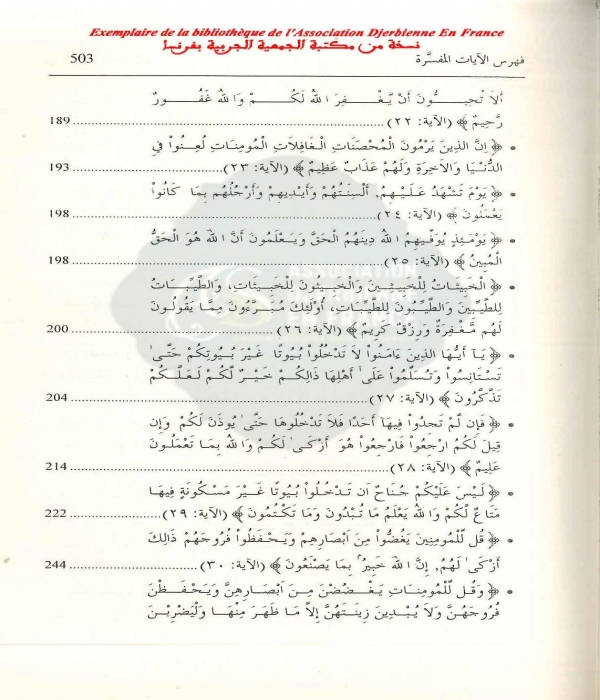 Exemplaire de la bibliothèque de l'Association Djerbienne En France
نسخة من مكتبة الجمعية الجربية بفرنسا
فهرس الآيات المفسَّرة 503
أَلاَ تُحِبُّونَ أَنْ يَّغْفِرَ اللهُ لَكُمْ وَاللهُ غَفُورٌ
رَّحِيمٌ ﴾ (الآية: ٢٢) ........ 189
• ﴿ إِنَّ الذِينَ يَرْمُونَ الْمُحْصَنَاتِ الْغَافِلَاتِ الْمُومِنَاتِ لُعِنُواْ فِي
الدُّنْيَا وَالَاخِرَةِ وَلَهُمْ عَذَابٌ عَظِيمٌ ﴾ (الآية: ٢٣) ........ 193
• ﴿ يَوْمَ تَشْهَدُ عَلَيْهِمُ, أَلْسِنَتُهُمْ وَأَيْدِيهِمْ وَأَرْجُلُهُم بِمَا كَانُواْ
يَعْمَلُونَ ﴾ (الآية: ٢٤) ........ 198
• ﴿ يَوْمَئِذٍ يُوَفِّيهِمُ اللهُ دِينَهُمُ الْحَقَّ وَيَعْلَمُونَ أَنَّ اللهَ هُوَ الْحَقُّ
الْمُبِينُ ﴾ (الآية: ٢٥) ........ 198
• ﴿ الْخَبِيثَاتُ لِلْخَبِيثِينَ وَالْخَبِيثُونَ لِلْخَبِيثَاتِ، وَالطَّيِّبَاتُ
لِلطَّيِّبِينَ وَالطَّيِّبُونَ لِلطَّيِّبَاتِ، أُوْلَئِكَ مُبَرَّءُونَ مِمَّا يَقُولُونَ
لَهُم مَّغْفِرَةٌ وَرِزْقٌ كَرِيمٌ ﴾ (الآية: ٢٦) ........ 200
• ﴿ يَآ أَيُّهَا الذِينَ ءَامَنُواْ لاَ تَدْخُلُواْ بُيُوتًا غَيْرَ بُيُوتِكُمْ حَتَّىٰ
تَسْتَانِسُواْ وَتُسَلِّمُواْ عَلَىٰ أَهْلِهَا ذَالِكُمْ خَيْرٌ لَّكُمْ لَعَلَّكُمْ
تَذَّكَّرُونَ ﴾ (الآية: ٢٧) ........ 204
• ﴿ فَإِن لَّمْ تَجِدُواْ فِيهَا أَحَدًا فَلاَ تَدْخُلُوهَا حَتَّىٰ يُوذَنَ لَكُمْ وَإِن
قِيلَ لَكُمُ ارْجِعُواْ فَارْجِعُواْ هُوَ أَزْكَىٰ لَكُمْ وَاللهُ بِمَا تَعْمَلُونَ
عَلِيمٌ ﴾ (الآية: ٢٨) ........ 214
• ﴿ لَيْسَ عَلَيْكُمْ جُنَاحٌ اَن تَدْخُلُواْ بُيُوتًا غَيْرَ مَسْكُونَةٍ فِيهَا
مَتَاعٌ لَّكُمْ وَاللهُ يَعْلَمُ مَا تُبْدُونَ وَمَا تَكْتُمُونَ ﴾ (الآية: ٢٩) ........ 222
• ﴿ قُل لِّلْمُومِنِينَ يَغُضُّواْ مِنَ اَبْصَارِهِمْ وَيَحْفَظُواْ فُرُوجَهُمْ ذَالِكَ
أَزْكَىٰ لَهُمُ, إِنَّ اللهَ خَبِيرٌ بِمَا يَصْنَعُونَ ﴾ (الآية: ٣٠) ........ 244
• ﴿ وَقُل لِّلْمُومِنَاتِ يَغْضُضْنَ مِنَ اَبْصَارِهِنَّ وَيَحْفَظْنَ
فُرُوجَهُنَّ وَلاَ يُبْدِينَ زِينَتَهُنَّ إِلاَّ مَا ظَهَرَ مِنْهَا وَلْيَضْرِبْنَ